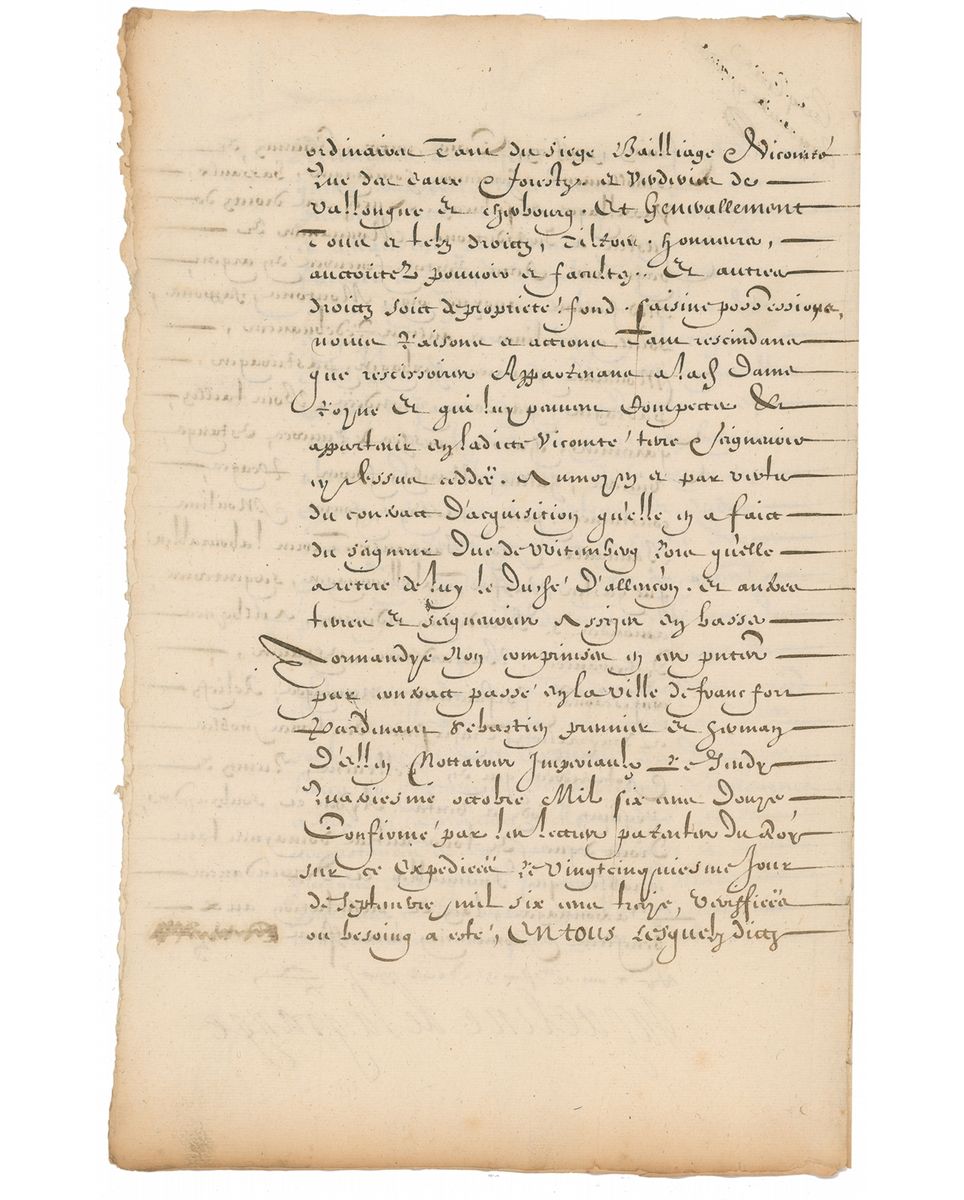 ordinaires Tant du siege Bailliage Vicomté
Que des eaux & forestz. et verderies de
Vallongne et cherbourg. Et Generallement
Tous et telz droictz, Tiltres. honneurs,
auctoritez pouvoirs et facultez. Et autres
droictz soict de propriete' fond. saisine possessions,
noms Raisons et actions Tant rescindans
que rescissoires Appartenans a lad Dame
Royne Et qui luy peuvent Compecter &
appartenir en ladicte vicomté terre & seigneurie
cy dessus ceddéë. Au moyen et par vertu
du contract d'acquisition qu'elle en a faict
du seigneur Duc de Witemberg Lors qu'elle
a retiré de luy le Duché D'allençon. et autres
terres et seigneuries Assizes en basse
Normandye Non comprinses en ces pntes
par contract passé en la ville de francfort
Pardevant sebastien prunier et herman
D'ellen Nottaires Imperiaulx Le Jeudy
Quatriesme octobre Mil six cens Douze
Confirmé par les lettres patentes du Roy
sur ce Expedieés Le vingtcinquiesme Jour
de septembre mil six cens traize, veriffieés
ou besoing a esté, EN TOUS Lesquelz dictz